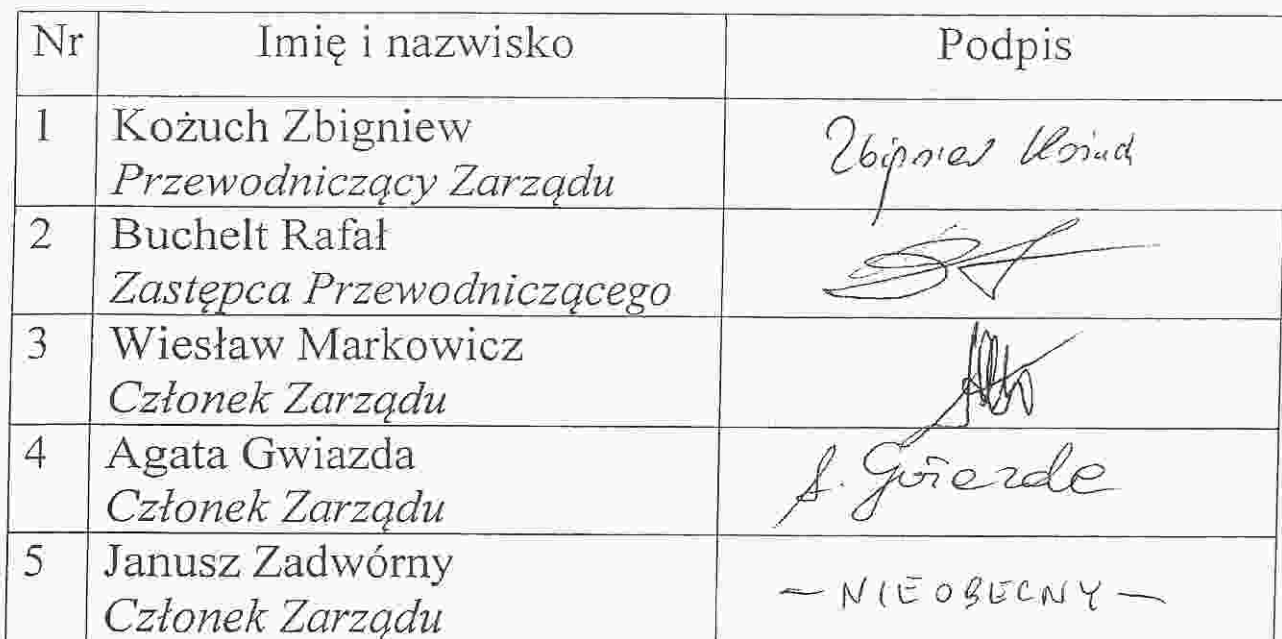 Nr Imię i nazwisko Podpis
1 Kożuch Zbigniew
Przewodniczący Zarządu
Zbigniew Kożuch
2 Buchelt Rafał
Zastępca Przewodniczącego
3 Wiesław Markowicz
Członek Zarządu
4 Agata Gwiazda
Członek Zarządu
A. Gwiazda
5 Janusz Zadwórny
Członek Zarządu
— NIEOBECNY —